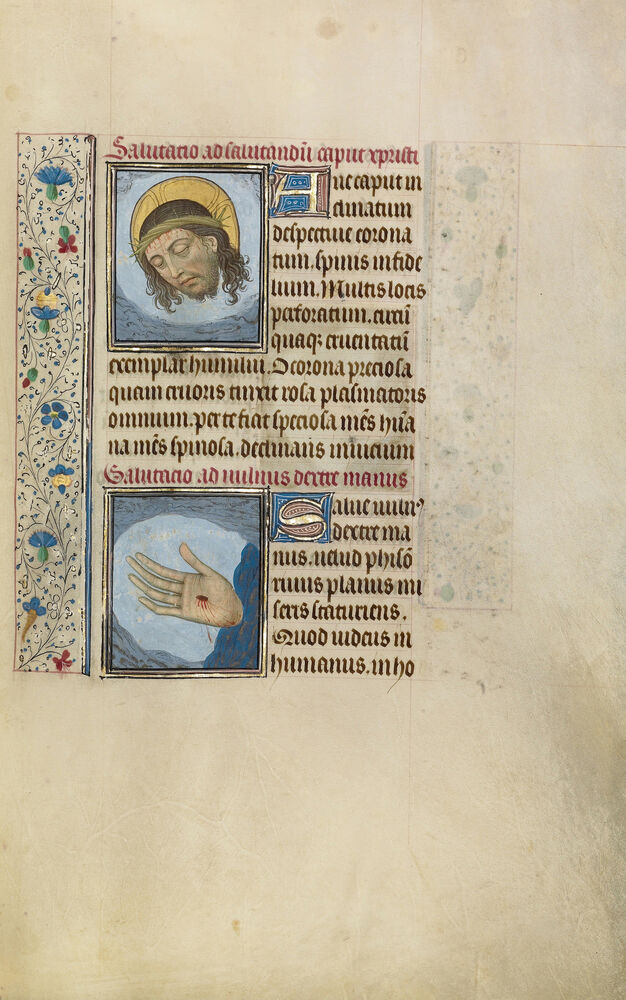 Salutatio ad salutandū caput xpristi
Aue caput in
clinatum
despectiue corona
tum. spinis infide
lium. Multis locis
perforatum. circū
quaq; cruentatū
exemplar humilui. O corona preciosa
quam cruoris tinxit rosa plasmatoris
omnium. per te fiat speciosa mēs hūa
na mēs spinosa. declinans in uicium
Salutacio ad uulnus dextre manus
Salue uuln⁹
dextre ma
nus. uelud phisō
riuus planus mi
seris scaturiens.
Quod uideus in
humanus. in ho